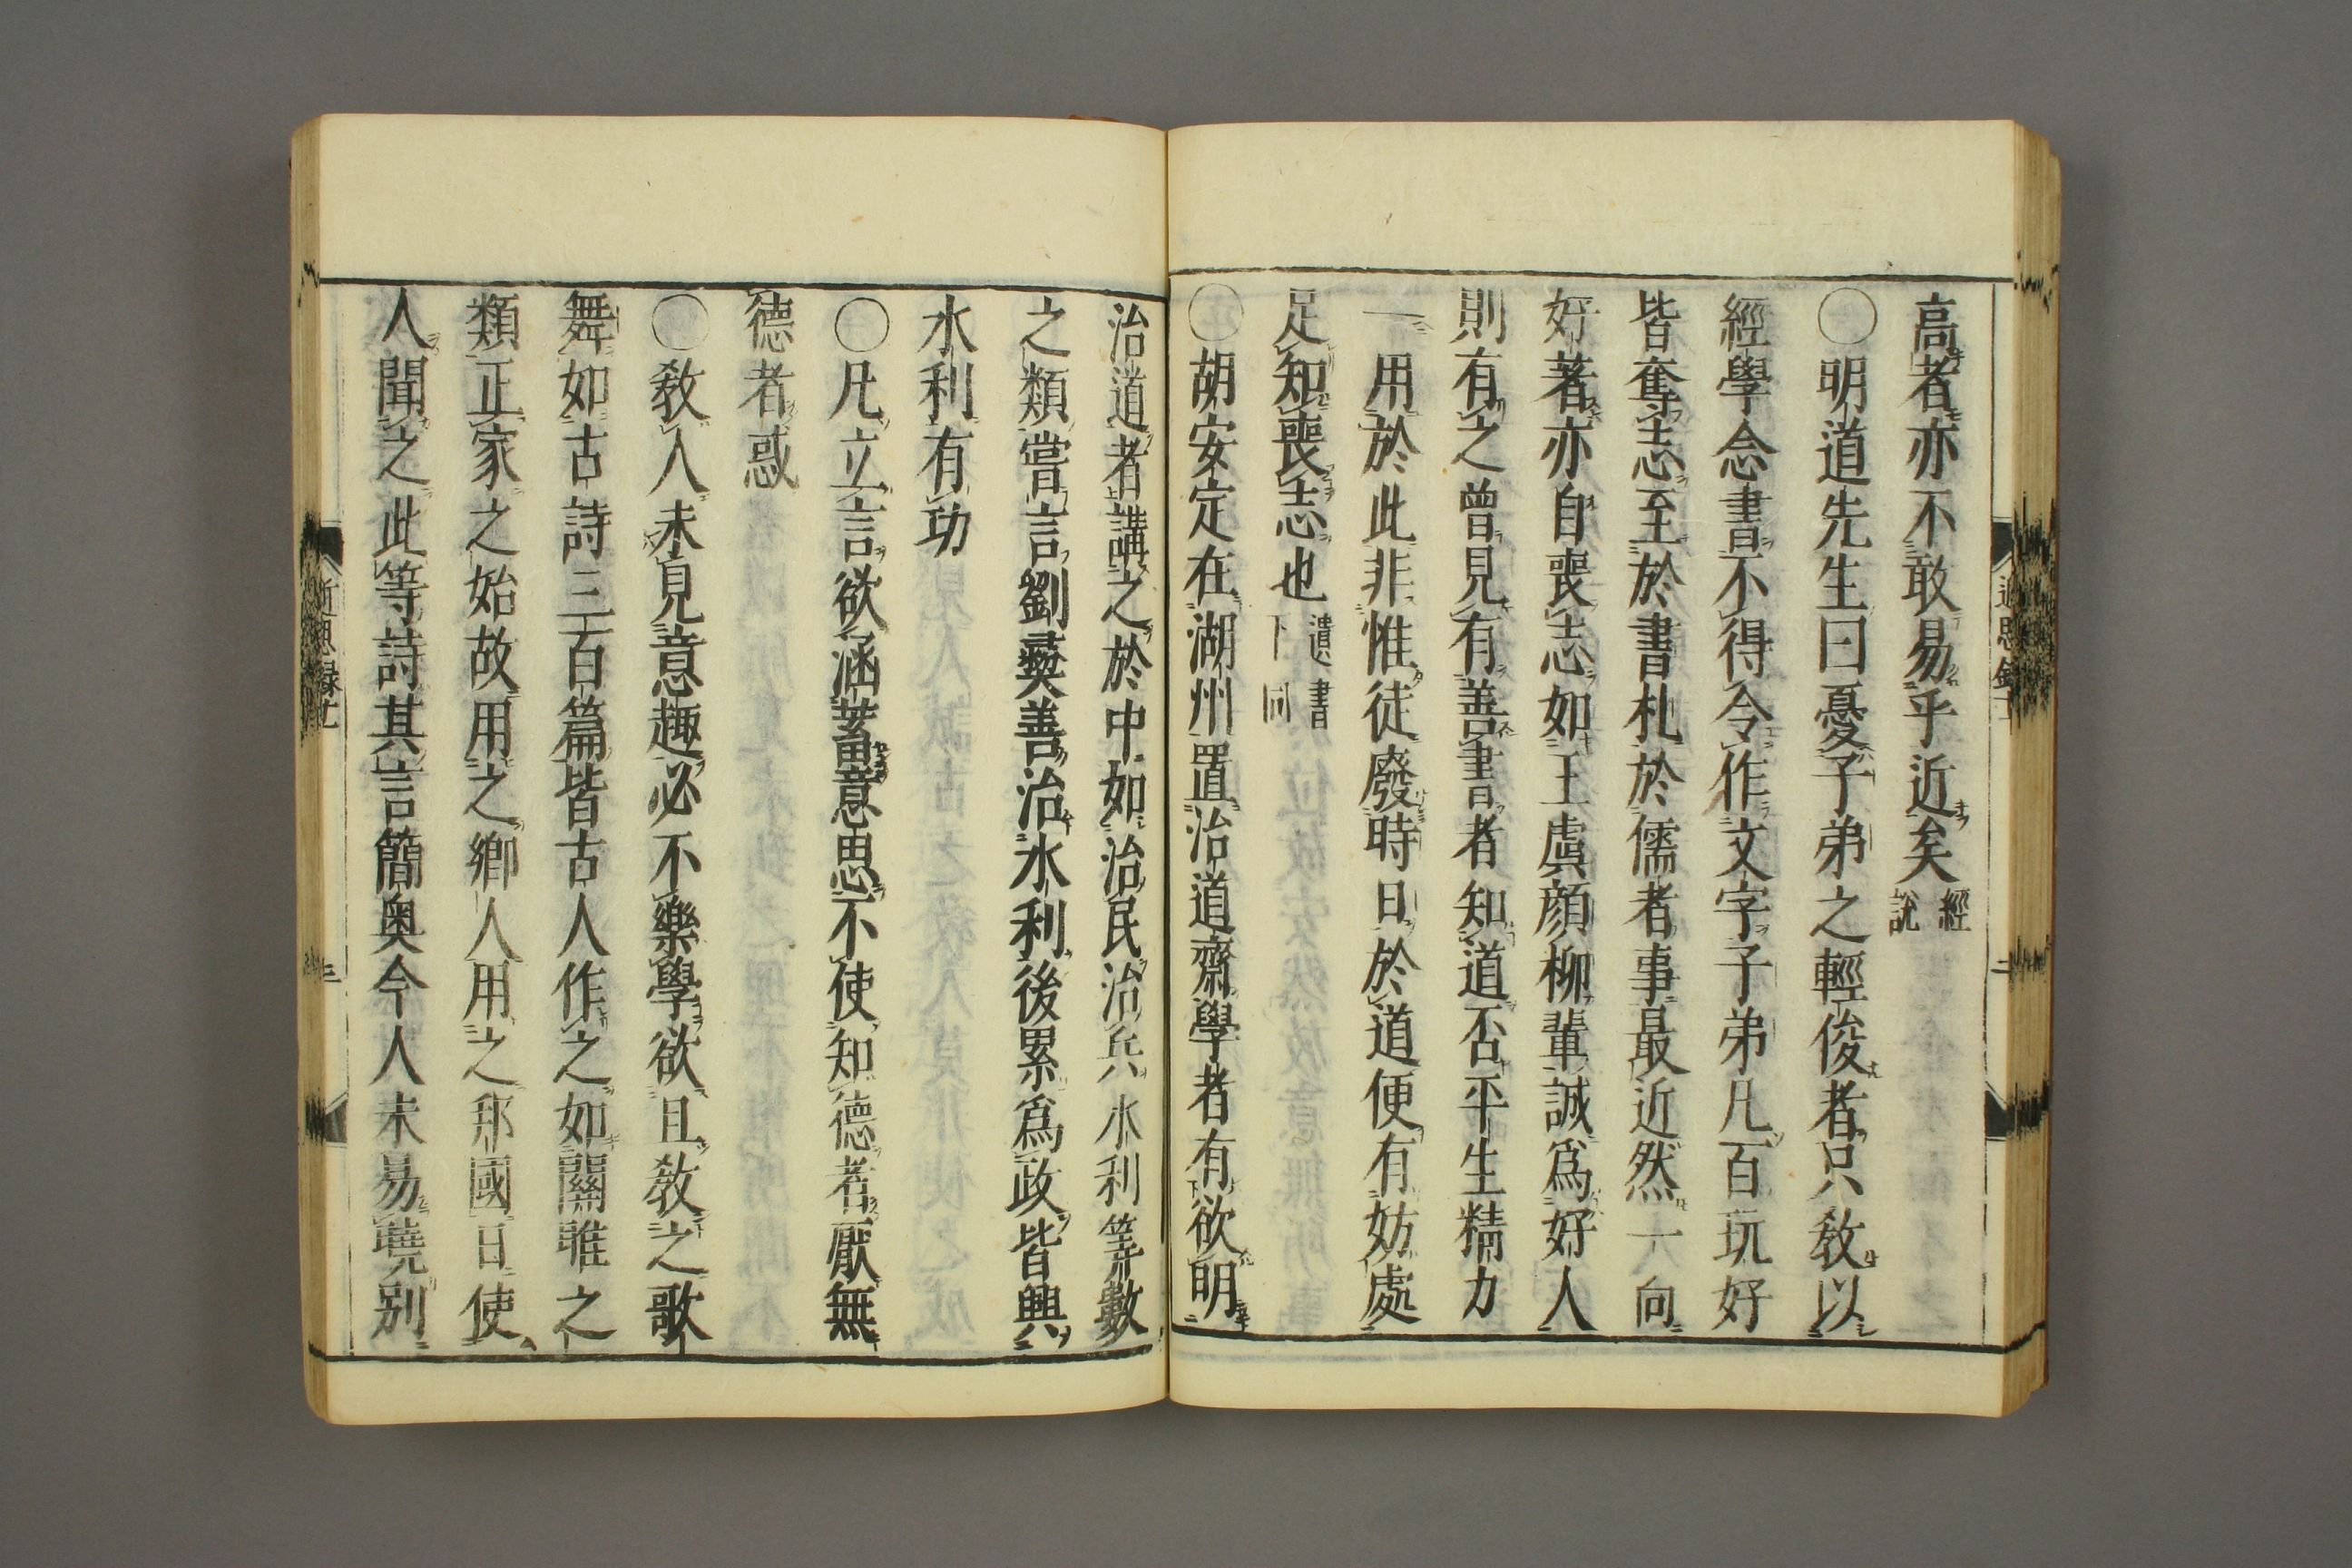 高者亦不敢易乎近矣經說
○明道先生曰憂子弟之輕俊者只教以
經學念書不得令作文字子弟凡百玩好
皆奪志至於書札於儒者事最近然一向
好著亦自喪志如王虞顏柳輩誠爲好人
則有之曾見有善書者知道否平生精力
一用於此非惟徒廢時日於道便有妨處
足知喪志也遺書下同
○胡安定在湖州置治道齋學者有欲明
治道者講之於中如治民治兵水利筭數
之類嘗言劉彝善治水利後累爲政皆興
水利有功
○凡立言欲涵蓄意思不使知德者厭無
德者惑
○教人未見意趣必不樂學欲且教之歌
舞如古詩三百篇皆古人作之如關雎之
類正家之始故用之鄉人用之邦國日使
人聞之此等詩其言簡奧今人未易曉別
近思錄十一
二
近思錄十一
三